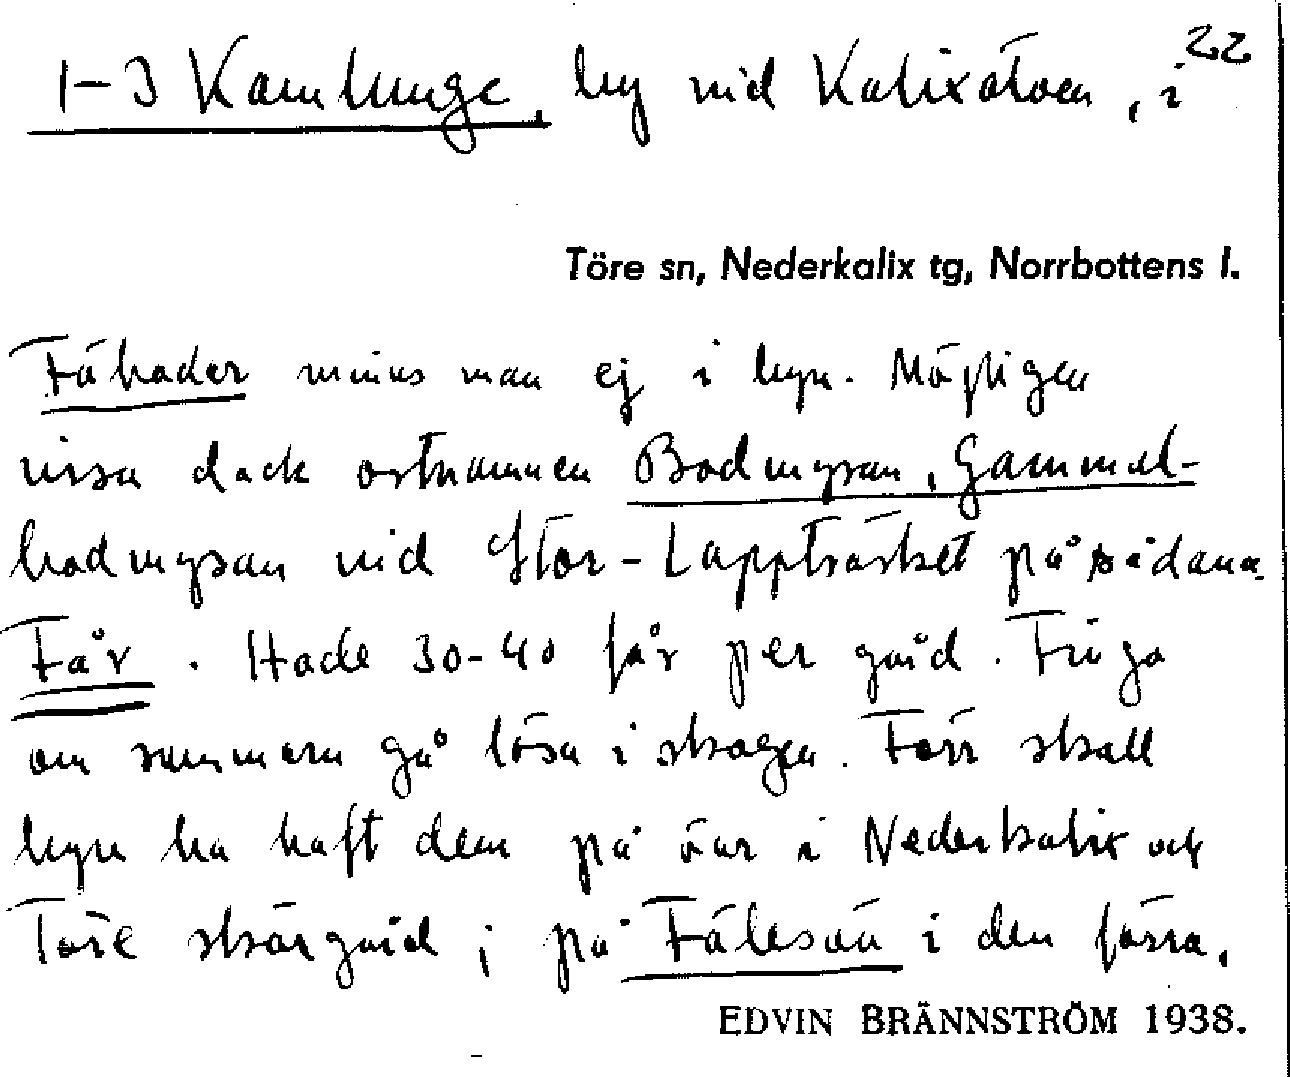 22
1-3 Kamlunge, by vid Kalixälven, i
Töre sn, Nederkalix tg, Norrbottens l.
Fäbodar minns man ej i byn. Möjligen
visa dock ortnamnen Bodmyran, Gammel-
bodmyran vid Stor-Lappträsket på sådana.
Får. Hade 30-40 får per gård. Fingo
om sommarn gå lösa i skogen. Förr skall
byn ha haft dem på öar i Nederkalix och
Töre skärgård; på Fålesöä i den förra.
EDVIN BRÄNNSTRÖM 1938.